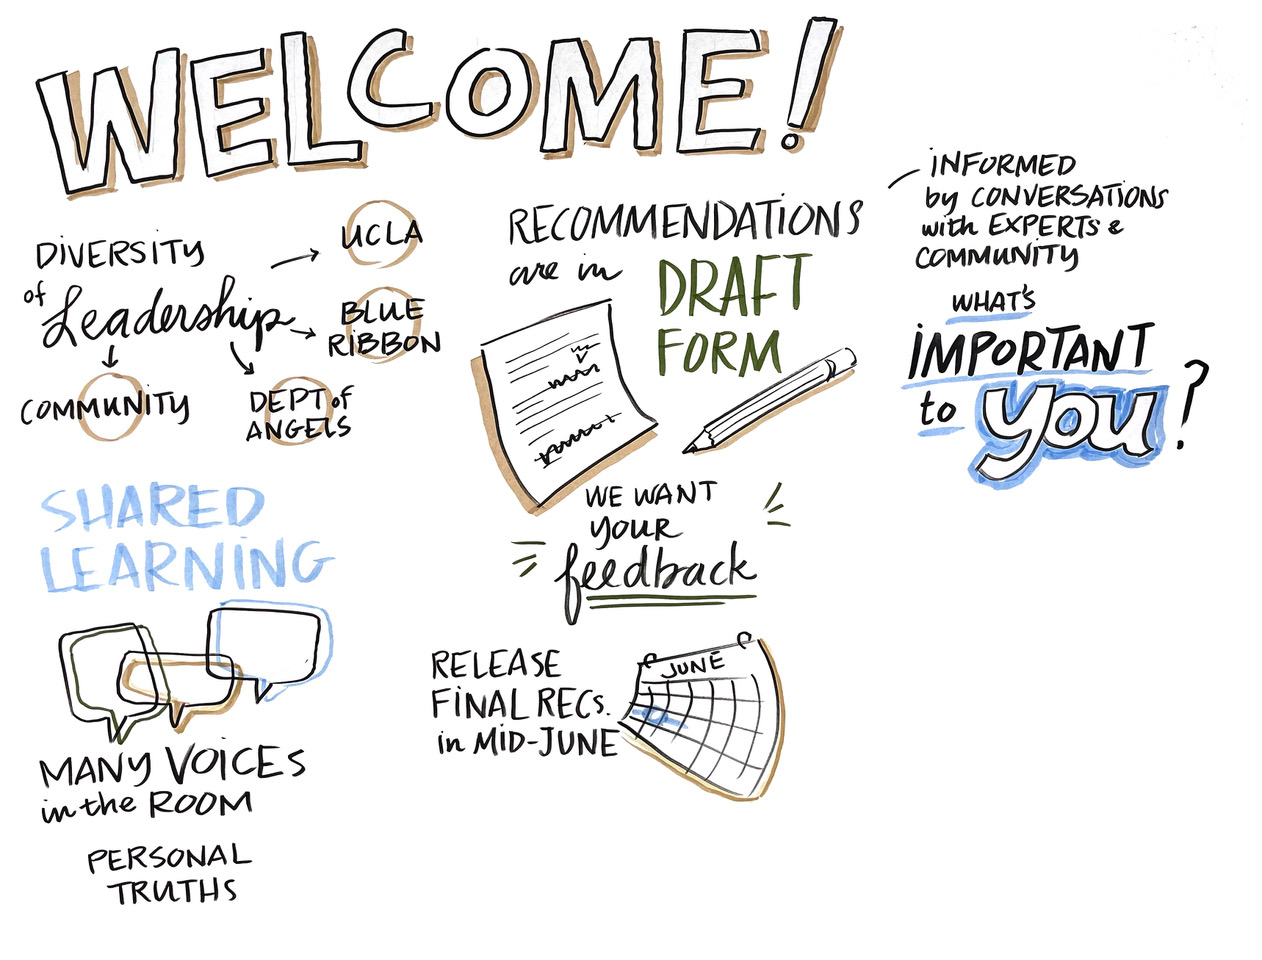 WELCOME!
DIVERSITY
of Leadership
UCLA
BLUE
RIBBON
COMMUNITY
DEPT of
ANGELS
SHARED
LEARNING
MANY VOICES
in the ROOM
PERSONAL
TRUTHS
RECOMMENDATIONS
are in
DRAFT
FORM
WE WANT
YOUR
feedback
RELEASE
FINAL RECS.
in MID-JUNE
JUNE
INFORMED
by CONVERSATIONS
with EXPERTS &
COMMUNITY
WHAT'S
IMPORTANT
to you?